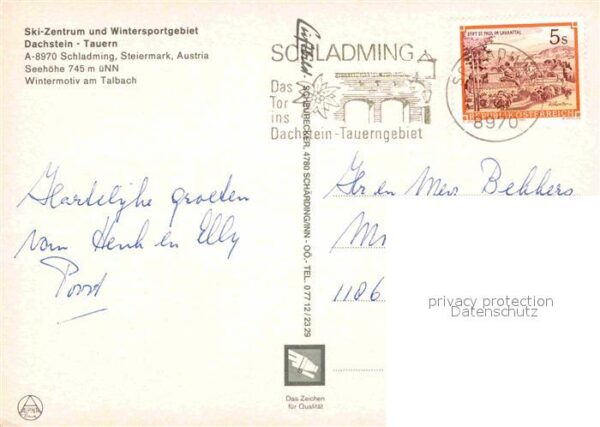 Ski-Zentrum und Wintersportgebiet
Dachstein - Tauern
A-8970 Schladming, Steiermark, Austria
Seehöhe 745 m üNN
Wintermotiv am Talbach
SCHLADMING
Das
Tor
ins
Dachstein-Tauerngebiet
STIFT ST. PAUL IM LAVANTTAL
5s
REPUBLIK ÖSTERREICH
8970
SCHÄRDING/INN - OÖ. - TEL. 0 77 12 / 23 29
Hartelijke groeten
van Henk en Elly
Hr en Mevr Bekkers
1186
privacy protection
Datenschutz
Das Zeichen
für Qualität